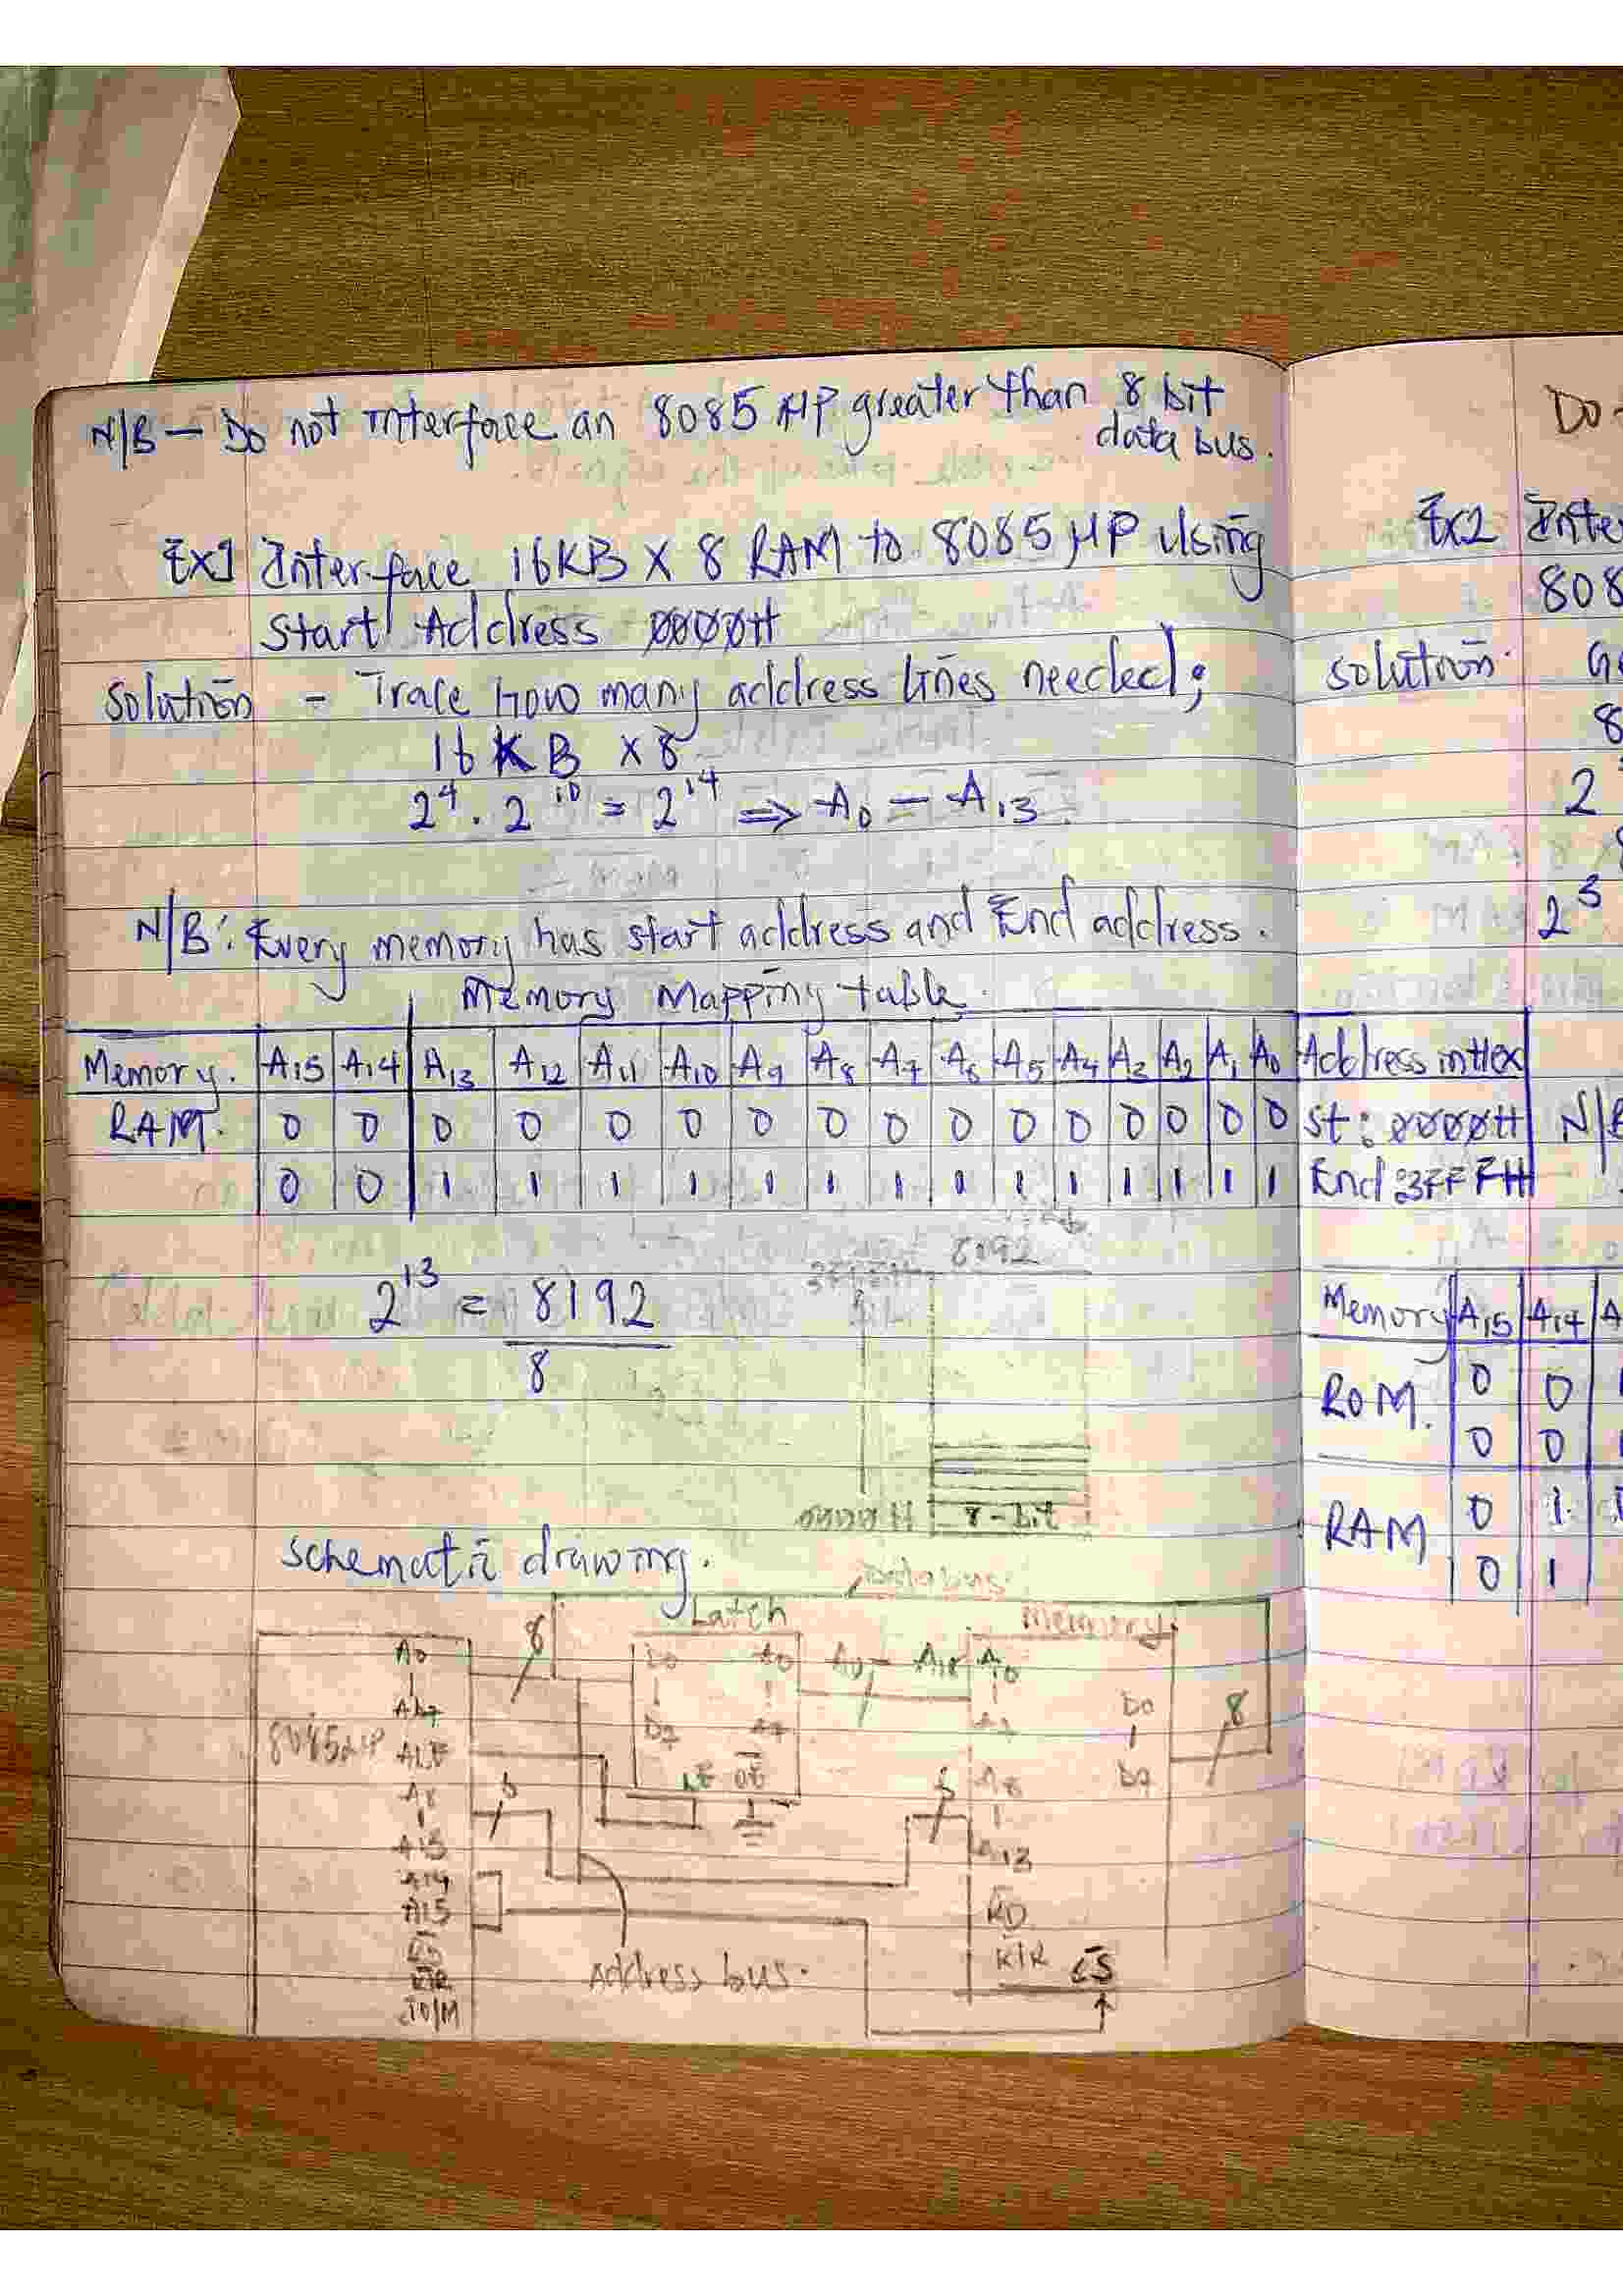 N/B - Do not interface an 8085 µP greater than 8 bit
data bus.
Ex1 Interface 16KB X 8 RAM to 8085 µP Using
Start Address 0000H
Solution - Trace how many address lines needed;
16 KB X 8
2^4 . 2^10 = 2^14 ⇒ A0 - A13
N/B: Every memory has start address and End address.
Memory Mapping table.
Memory. A15 A14 A13 A12 A11 A10 A9 A8 A7 A6 A5 A4 A3 A2 A1 A0 Address in Hex
RAM. 0 0 0 0 0 0 0 0 0 0 0 0 0 0 0 0 St: 0000H
0 0 1 1 1 1 1 1 1 1 1 1 1 1 1 1 End: 3FFFH
2^13 = 8192
8
8192
8-bit
Schematic drawing.
Latch
Memory
8
A0
AD7
8085µP
ALE
A8
A15
A14
A15
IO/M
6
D0
D7
A0
A7
LE OE
Address bus.
A0
A8
A13
RD
CS
D0
D7
8
Do
Ex2 Inte
808
Solution
2
2^3
N/B
Memory A15 A14 A
ROM. 0 0
0 0
RAM 0 1
0 1